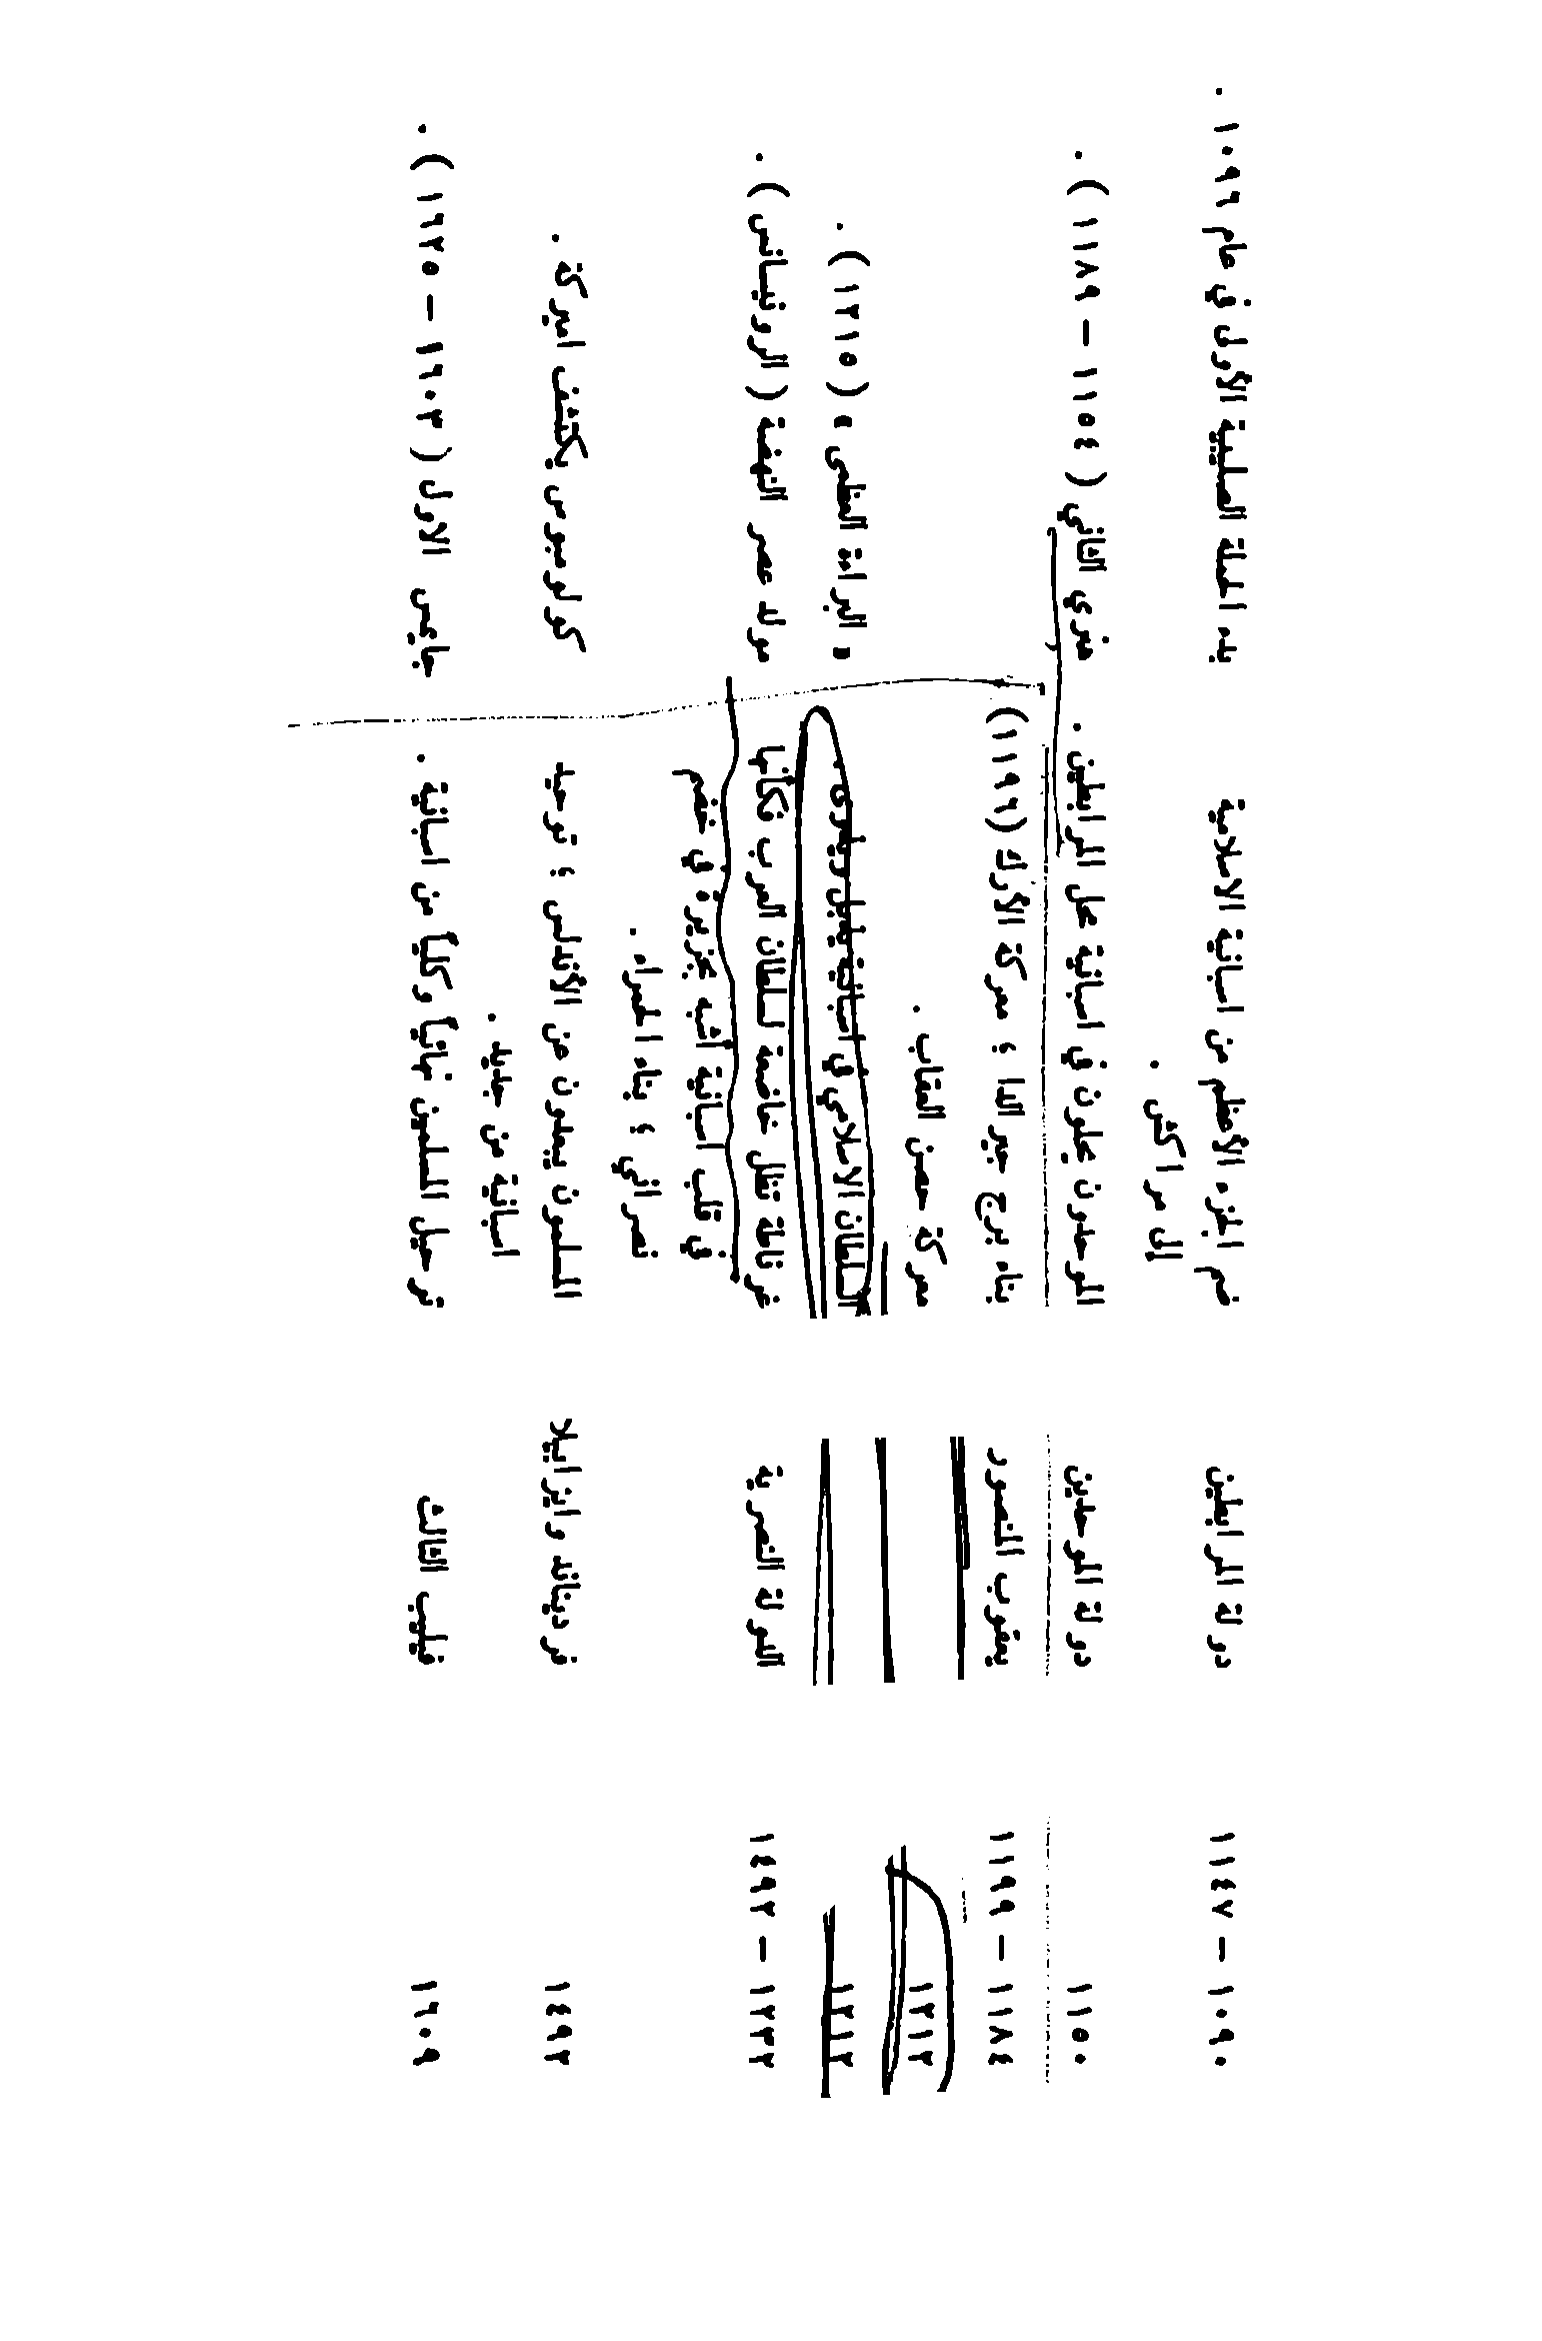 ١٠٩٠ – ١١٤٧ دولة المرابطين ضم الجزء الأعظم من اسبانية الاسلامية بدء الحملة الصليبية الأولى في عام ١٠٩٦ .
إلى مراكش .
١١٥٠ دولة الموحدين الموحدون يحلون في اسبانية محل المرابطين . هنري الثاني ( ١١٥٤ – ١١٨٩ ) .
١١٨٤ – ١١٩٩ يعقوب المنصور بناء برج جيرالدا ؛ معركة الأرك (١١٩٦)
١٢١٢ معركة حصن العقاب .
١٢١٢ السلطان الاسلامي في اسبانية يذبل ويذوى . « البراءة العظمى » ( ١٢١٥ ) .
١٢٣٢ – ١٤٩٢ الدولة النصرية غرناطة تظل خاضعة لسلطان العرب فكأنها مولد عصر النهضة ( الرونيسانس ) .
في قلب اسبانية أشبه بجزيرة في خضم
نصراني ؛ بناء الحمراء .
١٤٩٢ فرديناند وايزابيلا المسلمون يجلون عن الأندلس ؛ توحيد كولومبوس يكتشف اميركة .
اسبانية من جديد .
١٦٠٩ فيليب الثالث ترحيل المسلمين نهائياً وكلياً من اسبانية . جايمس الاول ( ١٦٠٣ – ١٦٢٥ ) .